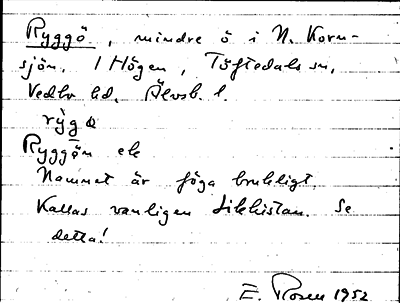 Ryggö, mindre ö i N. Korn-
sjön. 1 Högen, Töftedals sn,
Vedbo hd. Älvsb. l.
rỳgø
Ryggön ek
Namnet är föga brukligt.
Kallas vanligen Likkistan. Se
detta!
E. Rosen 1952